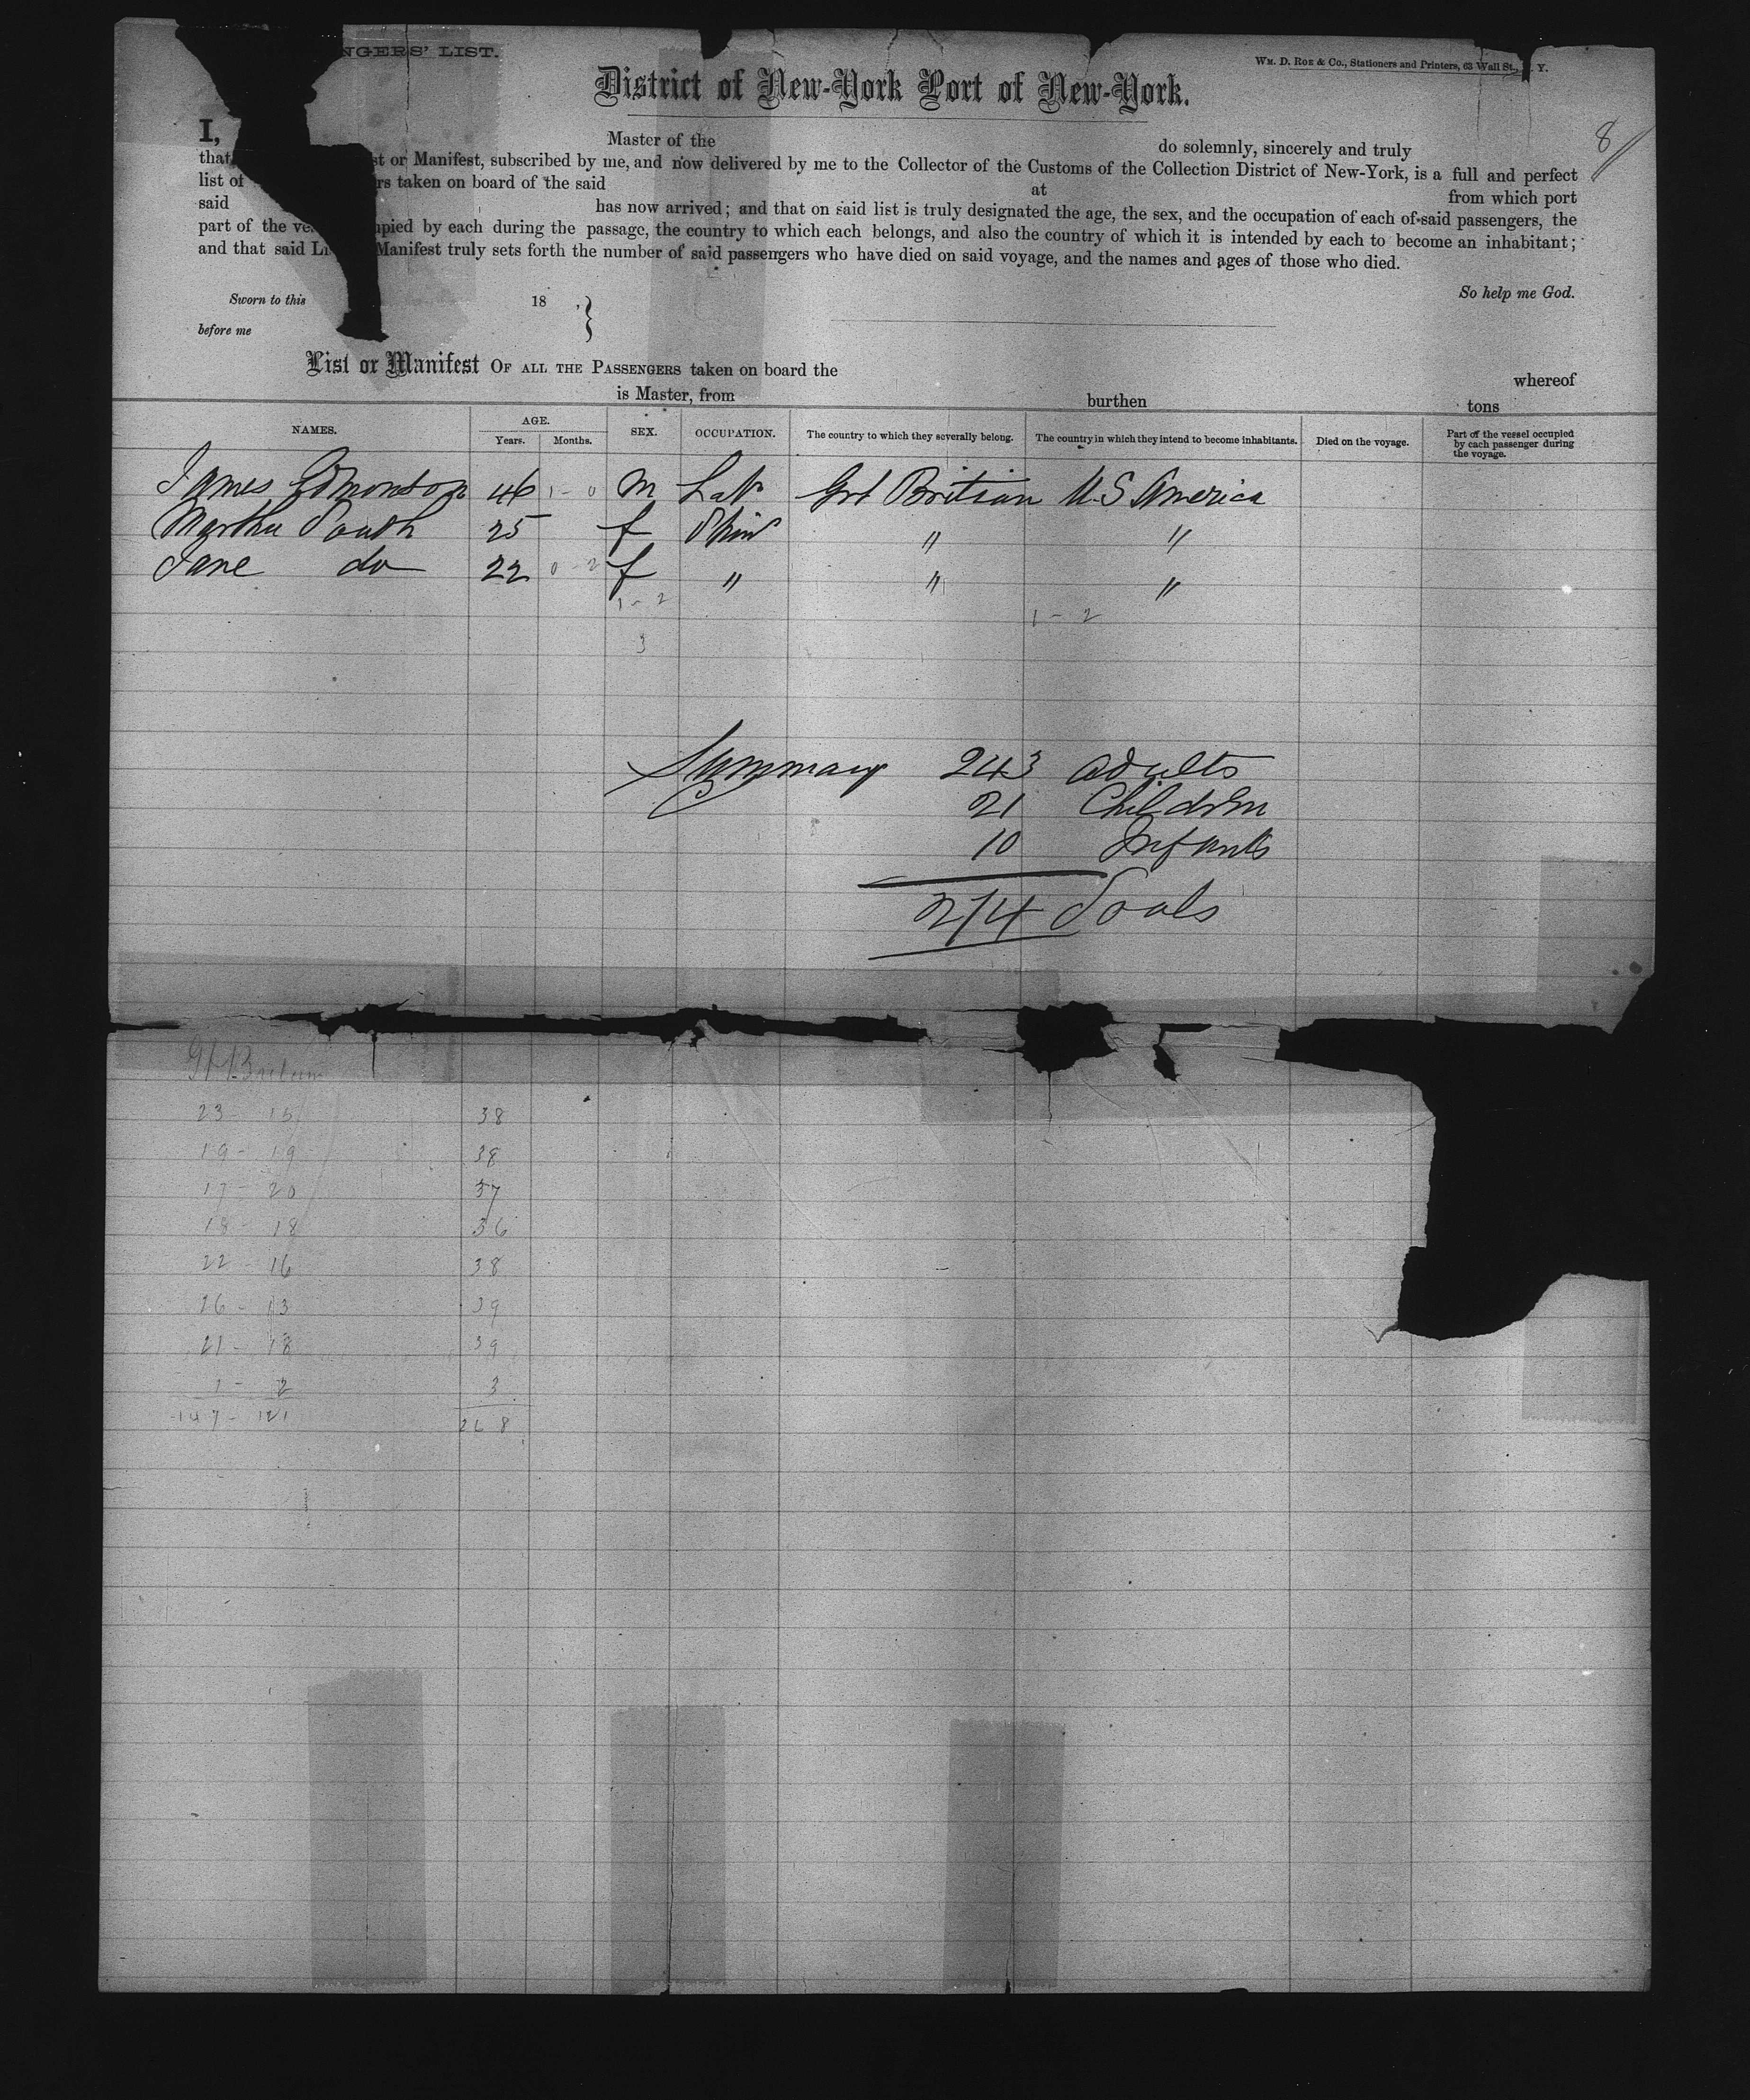 NGERS' LIST.
WM. D. ROE & CO., Stationers and Printers, 63 Wall St., N. Y.
District of New-York Port of New-York.
8
I, Master of the do solemnly, sincerely and truly
that st or Manifest, subscribed by me, and now delivered by me to the Collector of the Customs of the Collection District of New-York, is a full and perfect
list of rs taken on board of the said at from which port
said has now arrived; and that on said list is truly designated the age, the sex, and the occupation of each of said passengers, the
part of the ve pied by each during the passage, the country to which each belongs, and also the country of which it is intended by each to become an inhabitant;
and that said Li Manifest truly sets forth the number of said passengers who have died on said voyage, and the names and ages of those who died.
So help me God.
Sworn to this 18
before me
List or Manifest OF ALL THE PASSENGERS taken on board the whereof
is Master, from burthen tons
NAMES. AGE. Years. Months. SEX. OCCUPATION. The country to which they severally belong. The country in which they intend to become inhabitants. Died on the voyage. Part of the vessel occupied by each passenger during the voyage.
James Edmondson 46 1 - 0 m Lab Grt Britian U.S America
Martha South 25 f Spin " "
Jane do 22 0 - 2 f " " "
1 - 2 1 - 2
3
Summary 243 adults
21 Children
10 Infants
274 Souls
Gt Britain
23 - 15 38
19 - 19 38
17 - 20 37
18 - 18 36
22 - 16 38
26 - 13 39
21 - 18 39
1 - 2 3
147 - 121 268